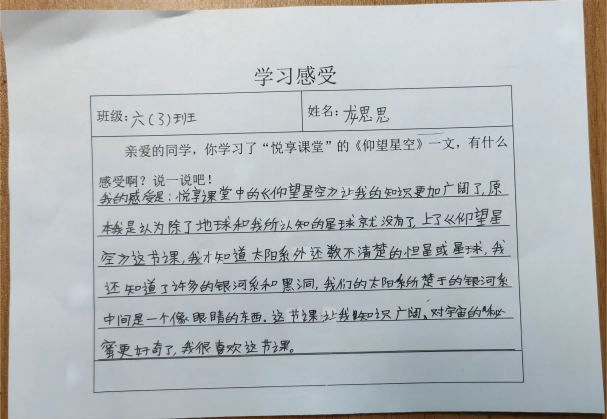 学习感受
班级:六(3)班
姓名:龙思思
亲爱的同学，你学习了“悦享课堂”的《仰望星空》一文，有什么
感受啊？说一说吧！
我的感受是:悦享课堂中的《仰望星空》让我的知识更加广阔了,原
本我是认为除了地球和我所认知的星球就没有了,上了《仰望星
空》这节课,我才知道太阳系外还数不清楚的恒星或星球,我
还知道了许多的银河系和黑洞,我们的太阳系所楚于的银河系
中间是一个像眼睛的东西.这节课让我知识广阔、对宇宙的秘
蜜更好奇了,我很喜欢这节课。